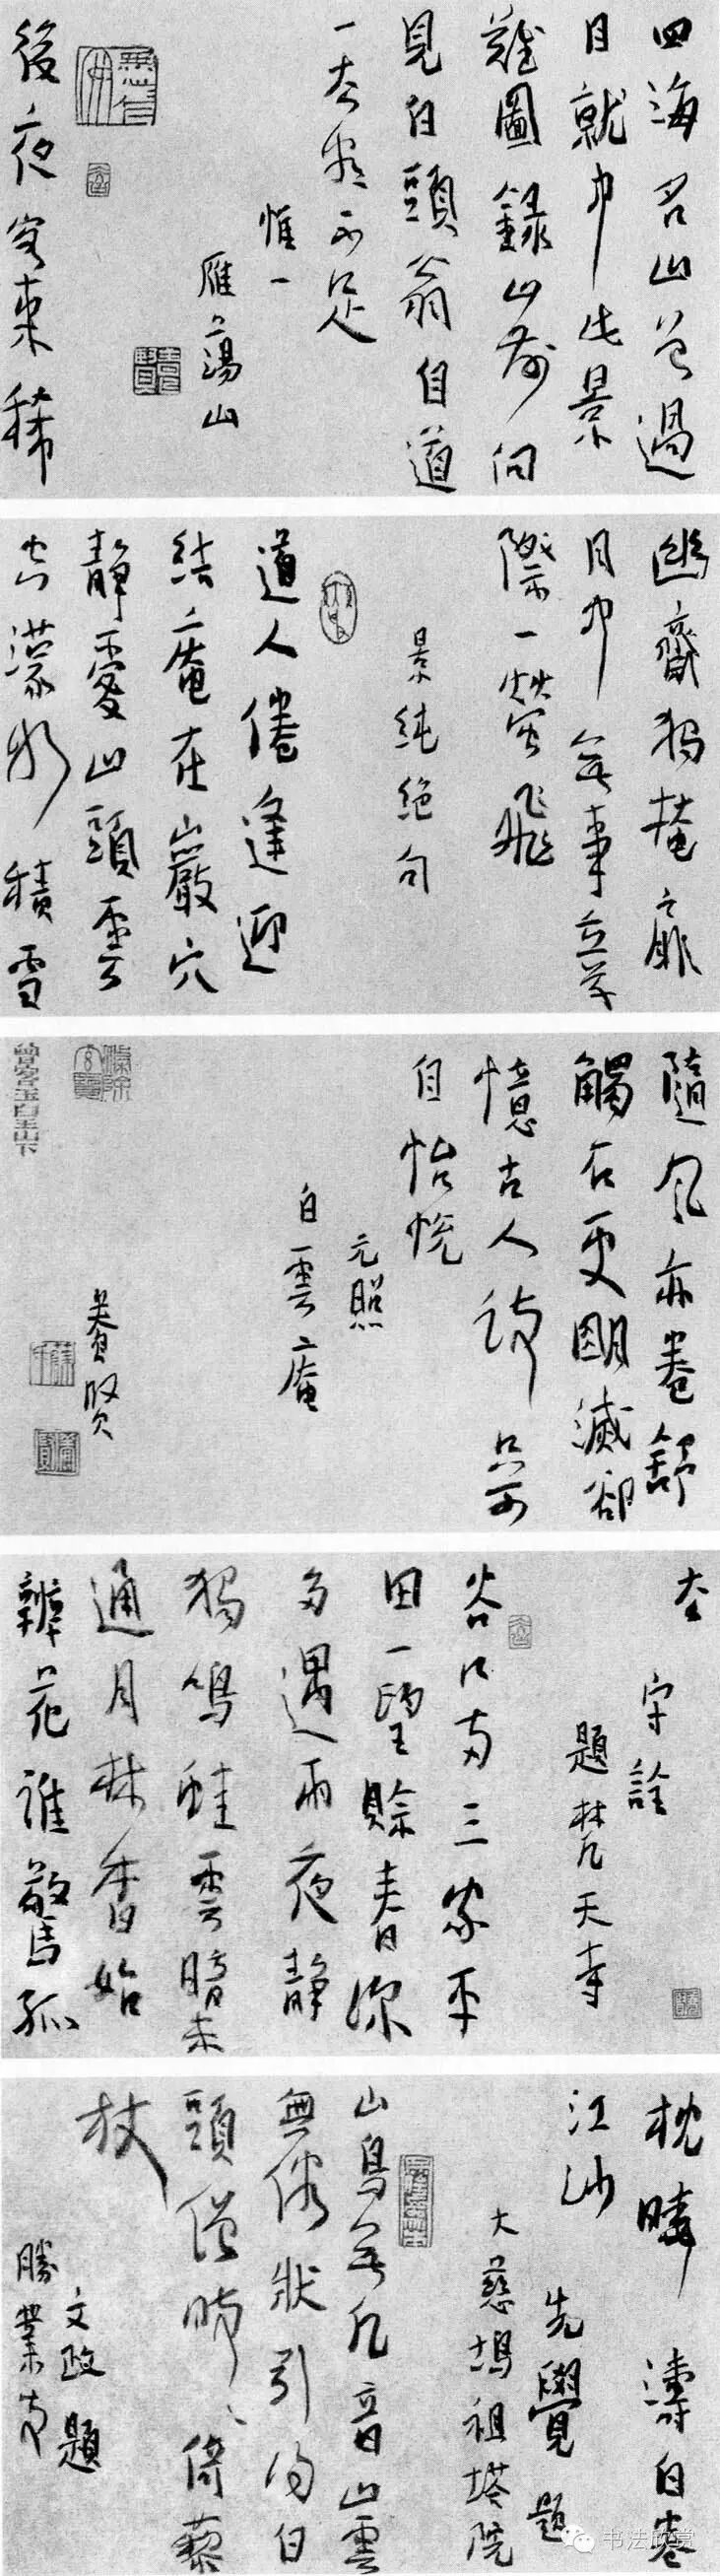 四海名山曾過
目就中此景
難圖錄山前向
見白頭翁自道
一生看不足
惟一
雁蕩山
後夜客來稀
幽齋獨掩扉
月中無事立草
際一螢飛
景純絕句
道人倦逢迎
結庵在巖穴
靜愛山頭雲
空濛如積雪
隨風亦卷舒
觸石更明滅却
憶古人詩只可
自怡悅
元照
白雲庵
養賢
守詮
題梵天寺
谷口兩三家平
田一望賒春深
多遇雨夜靜
獨鳴蛙雲暗未
通月林香始
辨花誰驚孤
枕曉濤白卷
江沙
先覺題
大慈塢祖塔院
山鳥無凡音山雲
無俗狀引得白
頭僧時時倚藜
杖
文政題
勝業寺
书法欣赏